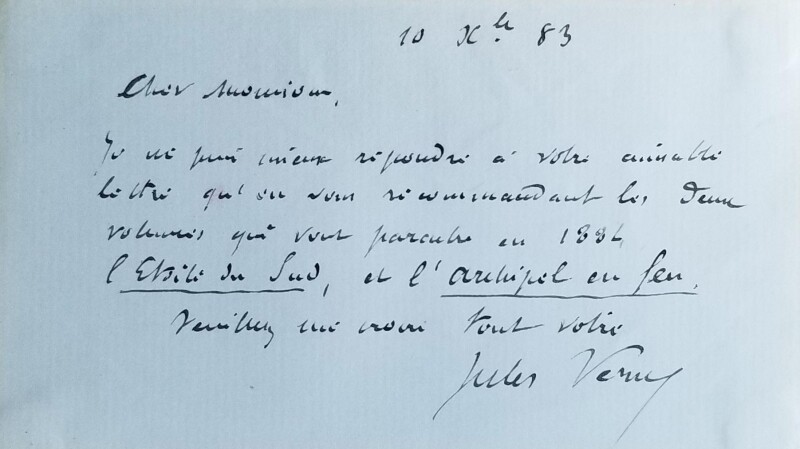 10 Xbre 83
Cher Monsieur,
Je ne puis mieux répondre à votre aimable
lettre qu'en vous recommandant les deux
volumes qui vont paraitre en 1884,
l'Etoile du Sud, et l'Archipel en feu.
Veuillez me croire tout votre
Jules Verne